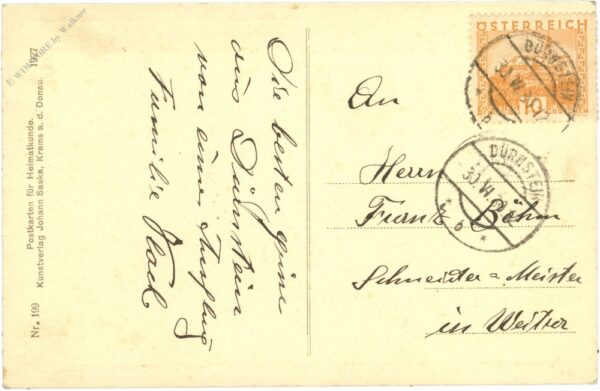 © WIMCORE by Walkner
Postkarten für Heimatkunde.
Kunstverlag Johann Saska, Krems a. d. Donau. 1927
Nr. 199
Die besten
aus Dürnstein
von einem Ausflug
Familie
ÖSTERREICH
10
DÜRNSTEIN
30.VI
DÜRNSTEIN
30.VI
b
An
Herrn
Franz Böhm
Schneider-Meister
in Weitra